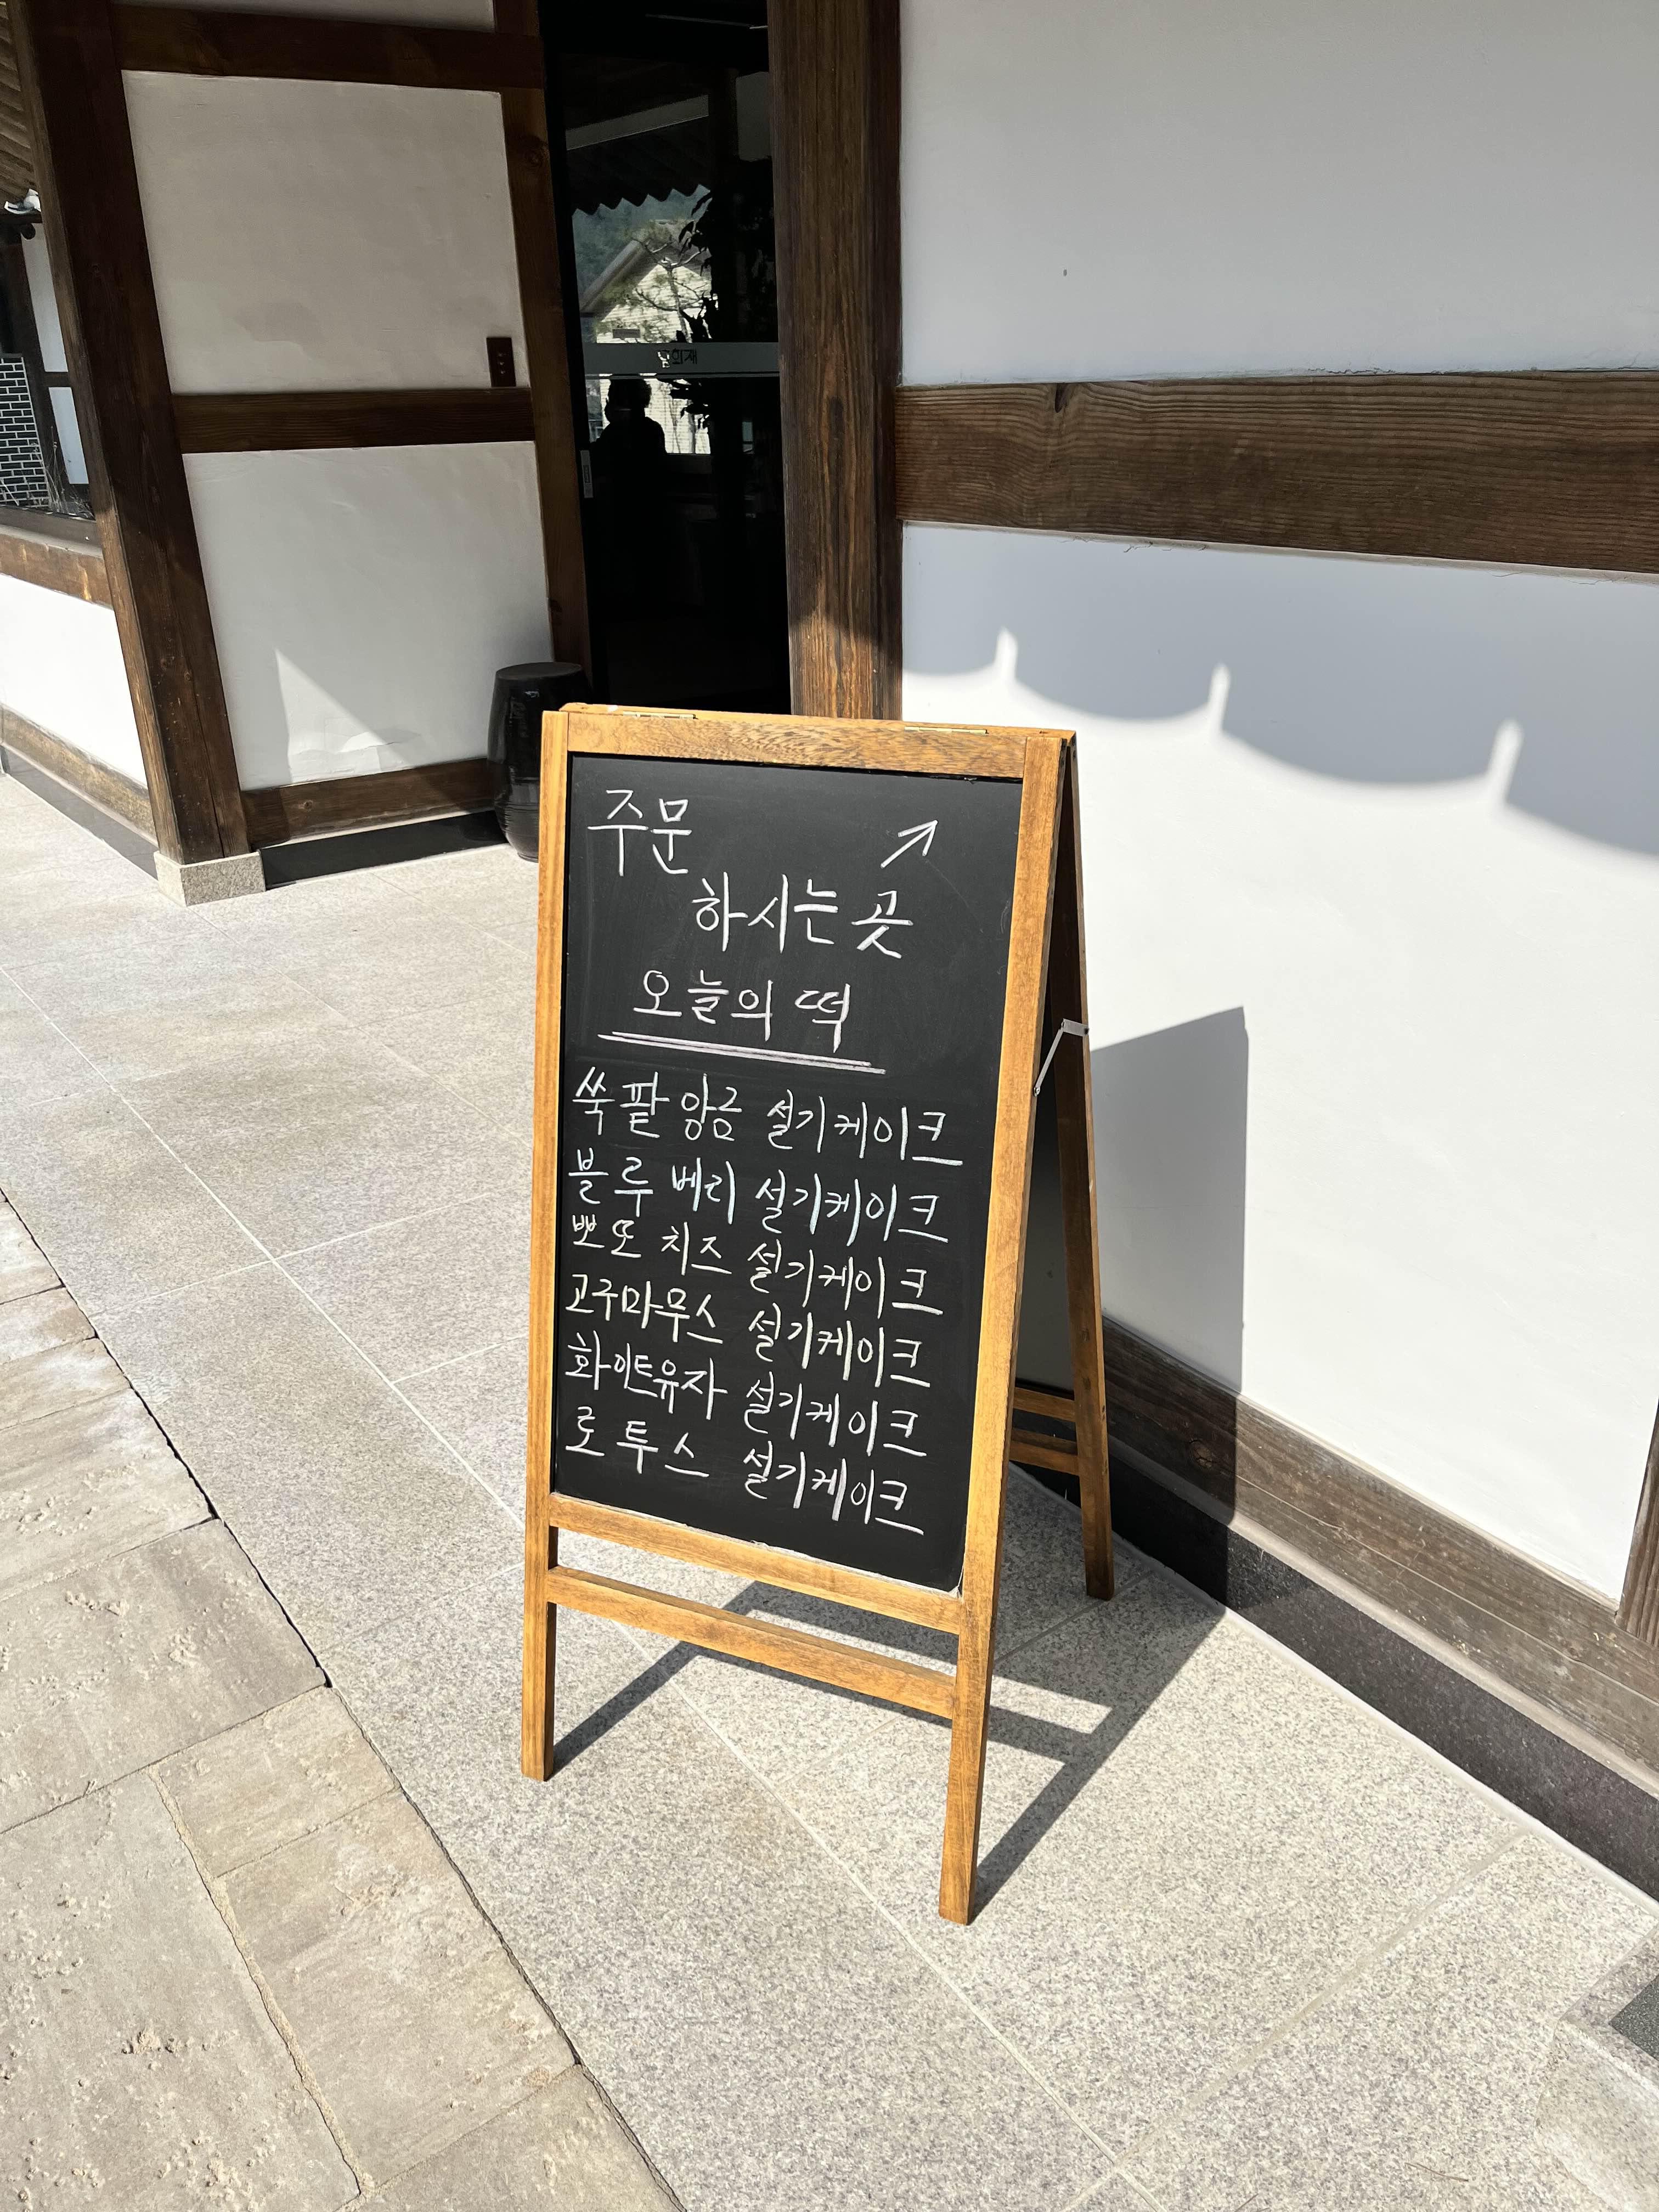 주문
하시는 곳
오늘의 떡
쑥팥앙금 설기케이크
블루베리 설기케이크
뽀또 치즈 설기케이크
고구마무스 설기케이크
화이트유자 설기케이크
로투스 설기케이크